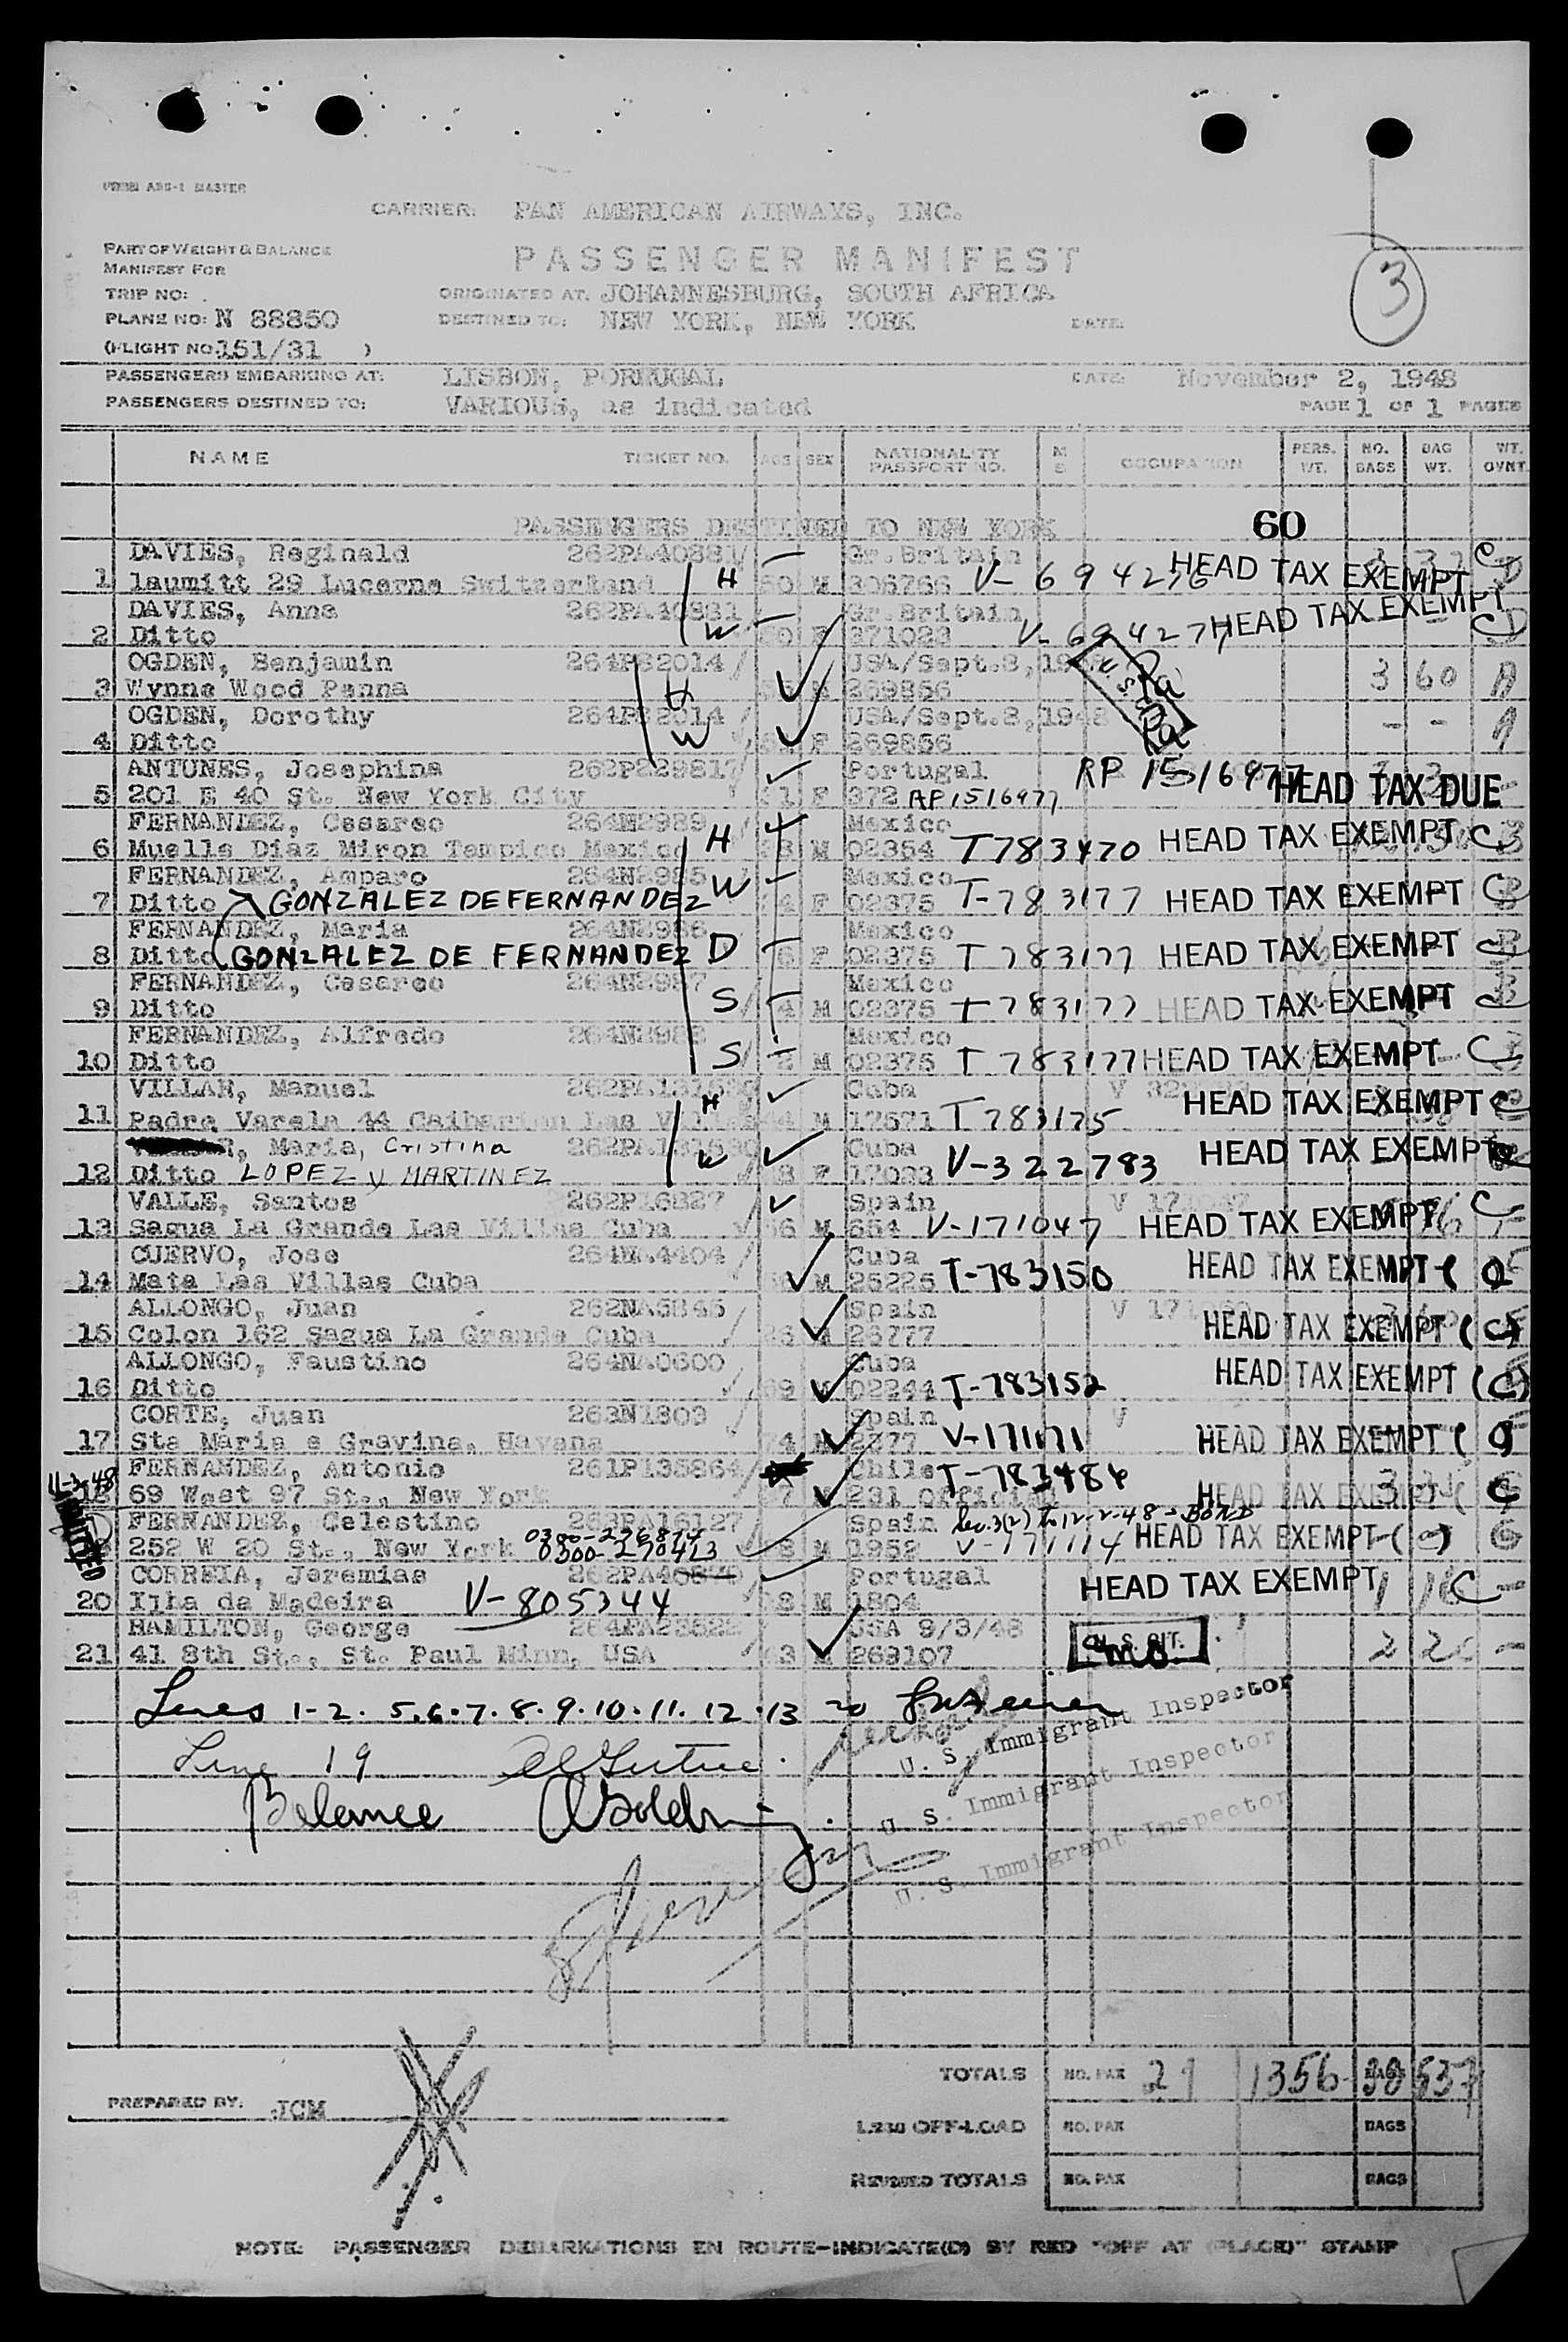 CARRIER: PAN AMERICAN AIRWAYS, INC.
PART OF WEIGHT & BALANCE
MANIFEST FOR
PASSENGER MANIFEST
TRIP NO:
ORIGINATED AT: JOHANNESBURG, SOUTH AFRICA
3
PLANE NO: N 88850
DESTINED TO: NEW YORK, NEW YORK
DATE:
(FLIGHT NO. 151/31 )
PASSENGERS EMBARKING AT: LISBON, PORTUGAL DATE: November 2, 1948
PASSENGERS DESTINED TO: VARIOUS, as indicated PAGE 1 OF 1 PAGES
NAME TICKET NO. AGE SEX NATIONALITY PASSPORT NO. M S OCCUPATION PERS. WT. NO. BAGS BAG WT. WT. OVNT.
PASSENGERS DESTINED TO NEW YORK 60
DAVIES, Reginald 262PA40881 Gr.Britain
1 laumitt 29 Lucerne Switzerland H 60 M 306766 V-694276 HEAD TAX EXEMPT
DAVIES, Anna 262PA40881 Gr.Britain
2 Ditto W F 371023 V-694277 HEAD TAX EXEMPT
OGDEN, Benjamin 264PS2014 USA/Sept.8,1948
3 Wynne Wood Penna H M 269856 3 60 A
OGDEN, Dorothy 264PS2014 USA/Sept.8,1948
4 Ditto W F 269856 - - A
ANTUNES, Josephina 262P229817 Portugal RP 1516977
5 201 E 40 St. New York City F 372 RP1516977 HEAD TAX DUE
FERNANDEZ, Cesareo 264N2989 Mexico
6 Muelle Diaz Miron Tampico Mexico H M 02354 T783470 HEAD TAX EXEMPT
FERNANDEZ, Amparo 264N2985 W Mexico
7 Ditto GONZALEZ DE FERNANDEZ F 02375 T-783177 HEAD TAX EXEMPT
FERNANDEZ, Maria 264N2986 Mexico
8 Ditto GONZALEZ DE FERNANDEZ D 6 F 02375 T 783177 HEAD TAX EXEMPT
FERNANDEZ, Cesareo 264N2987 Mexico
9 Ditto S 4 M 02375 T 783177 HEAD TAX EXEMPT
FERNANDEZ, Alfredo 264N2988 Mexico
10 Ditto S M 02375 T 783177 HEAD TAX EXEMPT
VILLAR, Manuel Cuba
11 Padre Varela 44 Caibarien Las Villas H M 17571 T 783175 HEAD TAX EXEMPT
Maria, Cristina Cuba
12 Ditto LOPEZ y MARTINEZ W F V-322783 HEAD TAX EXEMPT
VALLE, Santos 262P16827 Spain V 171047
13 Sagua La Grande Las Villas Cuba M 654 V-171047 HEAD TAX EXEMPT
CUERVO, Jose 264NA4404 Cuba
14 Mata Las Villas Cuba M 25225 T-783150 HEAD TAX EXEMPT
ALLONGO, Juan 262NA5845 Spain
15 Colon 162 Sagua La Grande Cuba M 26777 HEAD TAX EXEMPT
ALLONGO, Faustino 264NA0600 Cuba
16 Ditto 02244 T-783152 HEAD TAX EXEMPT
CORTE, Juan 263N1809 Spain V
17 Sta Maria e Gravina, Havana 74 M 2377 V-171171 HEAD TAX EXEMPT
11-2-48 FERNANDEZ, Antonio 261P135864 Chile T-783486
18 69 West 97 St., New York 231 Official HEAD TAX EXEMPT
ADMITTED FERNANDEZ, Celestino 263PA16127 Spain Sec.3(2) to 12-2-48 - BOND
252 W 20 St., New York 0300-270413 M 1952 HEAD TAX EXEMPT
CORREIA, Jeremias Portugal
20 Ilha da Madeira V-805344 M 1804 HEAD TAX EXEMPT
HAMILTON, George 264PA23522 USA 9/3/48
21 41 8th St., St. Paul Minn, USA M 269107 U. S. CIT. 2
Lines 1-2. 5.6.7.8.9.10.11.12.13 20
U. S. Immigrant Inspector
Line 19
U. S. Immigrant Inspector
Balance
U. S. Immigrant Inspector
TOTALS NO. PAX 21 1356 BAGS 30 537
PREPARED BY: JCM
LESS OFF-LOAD NO. PAX BAGS
REVISED TOTALS NO. PAX BAGS
NOTE: PASSENGER DEBARKATIONS EN ROUTE-INDICATE(D) BY RED "OFF AT (PLACE)" STAMP